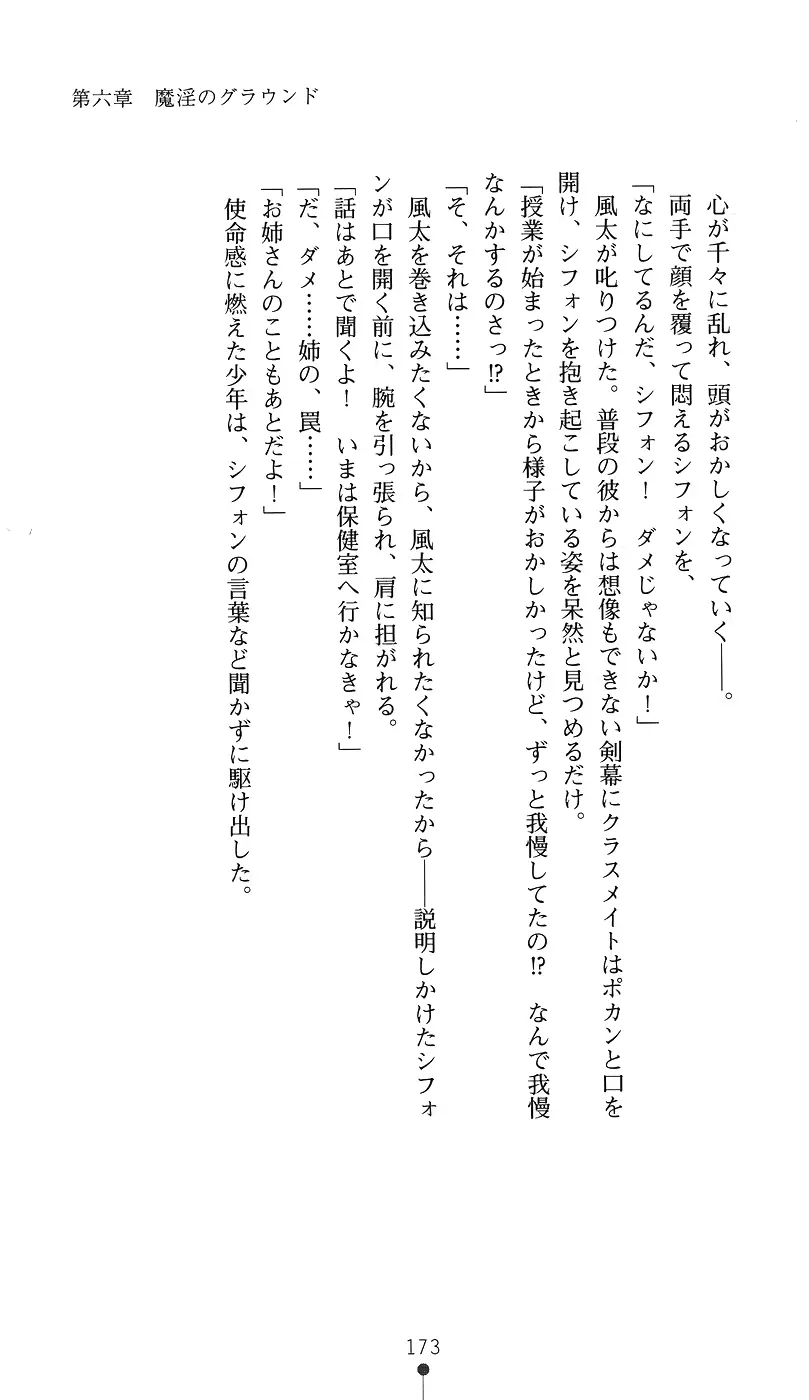 第六章　魔淫のグラウンド
　心が千々に乱れ、頭がおかしくなっていく――。
　両手で顔を覆って悶えるシフォンを、
「なにしてるんだ、シフォン！　ダメじゃないか！」
　風太が叱りつけた。普段の彼からは想像もできない剣幕にクラスメイトはポカンと口を
開け、シフォンを抱き起こしている姿を呆然と見つめるだけ。
「授業が始まったときから様子がおかしかったけど、ずっと我慢してたの⁉　なんで我慢
なんかするのさっ⁉」
「そ、それは……」
　風太を巻き込みたくないから、風太に知られたくなかったから――説明しかけたシフォ
ンが口を開く前に、腕を引っ張られ、肩に担がれる。
「話はあとで聞くよ！　いまは保健室へ行かなきゃ！」
「だ、ダメ……姉の、罠……」
「お姉さんのこともあとだよ！」
　使命感に燃えた少年は、シフォンの言葉など聞かずに駆け出した。
173